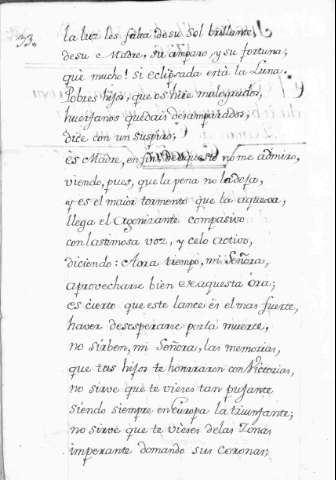 33.
la luz les falta de su Sol brillante,
de su Madre, su amparo, y su fortuna;
què mucho! si eclipsada està la Luna.
Pobres hijos, que os hize malogrados,
huerfanos quedais desamparados,
dice con un suspiro;
es Madre, en fin, de que esto no me admiro,
viendo, pues, que la pena no la dexa,
y es el maior tormento que la aquexa,
llega el Agonizante compasivo
con lastimosa voz, y celo activo,
diciendo: Aora tiempo, mi Señora,
aprovecharse bien de aquesta ora;
es cierto que este lance es el mas fuerte,
haver desesperarse por la muerte,
no sirben, mi Señora, las memorias,
que tus hijos te honraron con Victorias,
no sirve que te vieses tan pujante
siendo siempre en Europa la triunfante;
no sirve que te vieses de las Zonas
imperante domando sus Coronas,